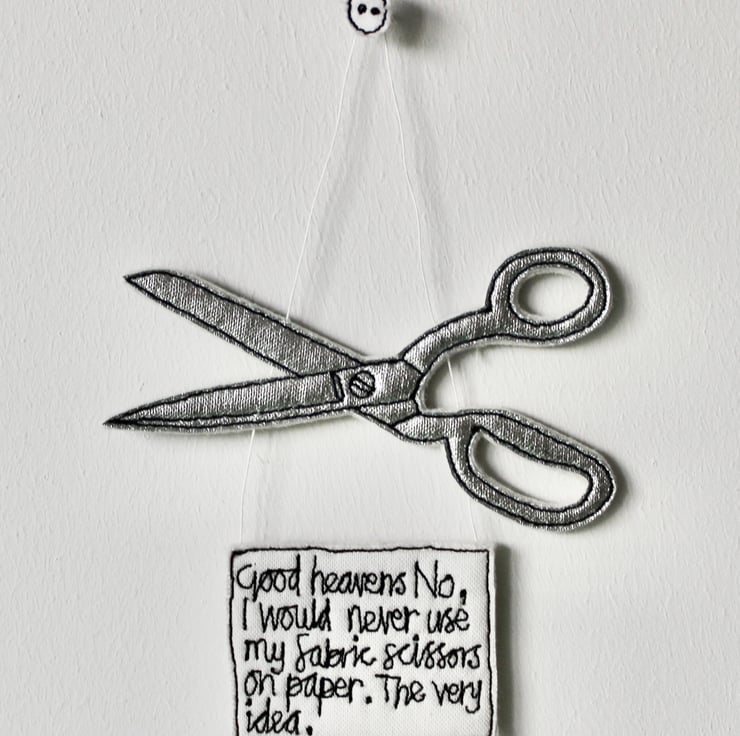 Good heavens No,
I would never use
my fabric scissors
on paper. The very
idea.